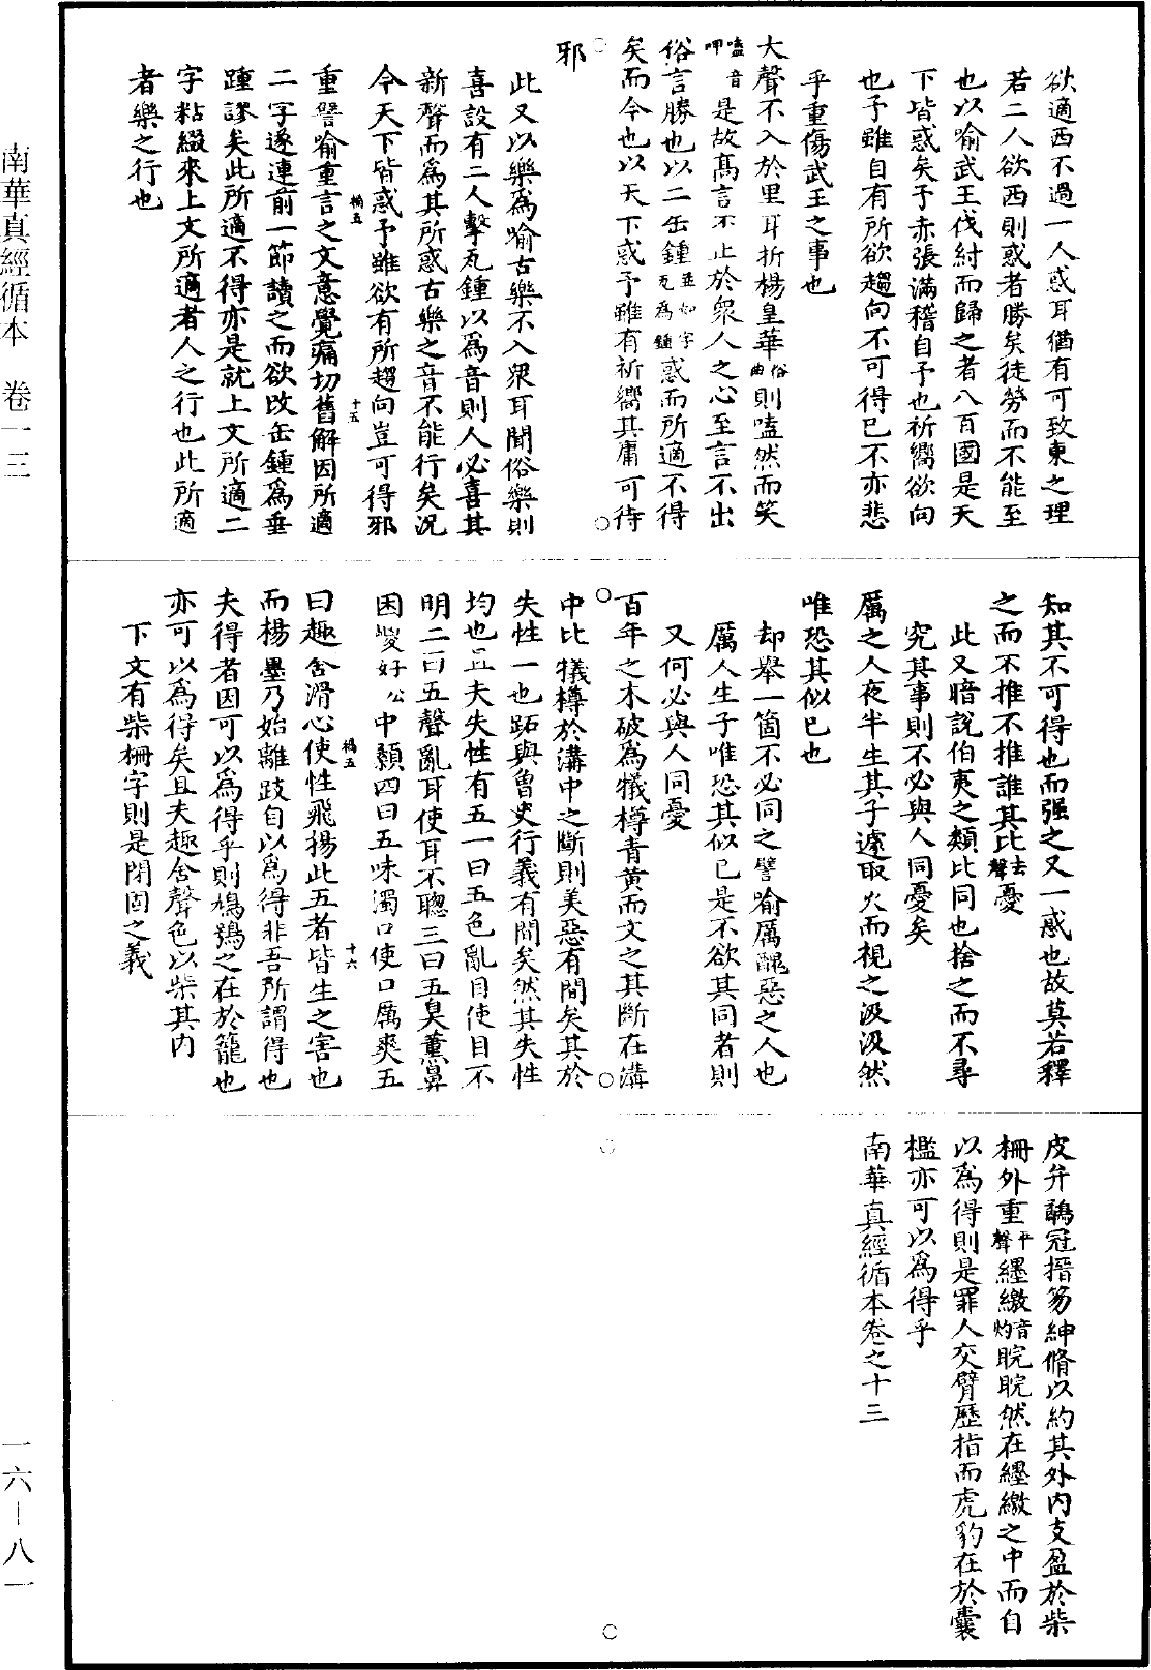 欲適西不過一人惑耳猶有可致東之理
若二人欲西則惑者勝矣徒勞而不能至
也以喻武王伐紂而歸之者八百國是天
下皆惑矣予赤張滿稽自予也祈嚮欲向
也予雖自有所欲趨向不可得已不亦悲
乎重傷武王之事也
大聲不入於里耳折楊皇華俗曲則嗑然而笑
嗑音呷是故高言不止於衆人之心至言不出
俗言勝也以二缶鍾並如字瓦為鍾惑而所適不得
矣而今也以天下惑予雖有祈嚮其庸可得
邪
此又以樂爲喻古樂不入衆耳聞俗樂則
喜設有二人擊瓦鍾以爲音則人必喜其
新聲而爲其所惑古樂之音不能行矣况
今天下皆惑予雖欲有所趨向豈可得邪
重譬喻重言之文意覺痛切舊解因所適
二字遂連前一節讀之而欲改缶鍾爲垂
踵謬矣此所適不得亦是就上文所適二
字粘綴來上文所適者人之行也此所適
者樂之行也
知其不可得也而强之又一惑也故莫若釋
之而不推不推誰其比去聲憂
此又暗說伯夷之類比同也捨之而不尋
究其事則不必與人同憂矣
厲之人夜半生其子遽取火而視之汲汲然
唯恐其似已也
却舉一箇不必同之譬喻厲醜惡之人也
厲人生子唯恐其似已是不欲其同者則
又何必與人同憂
百年之木破爲犧樽青黄而文之其斷在溝
中比犧樽於溝中之斷則美惡有間矣其於
失性一也跖與曾史行義有間矣然其失性
均也且夫失性有五一曰五色亂目使目不
明二曰五聲亂耳使耳不聰三曰五臭薰鼻
困㚇好公中顙四曰五味濁口使口厲爽五
曰趣舍滑心使性飛揚此五者皆生之害也
而楊墨乃始離跂自以爲得非吾所謂得也
夫得者困可以爲得乎則鳩鴞之在於籠也
亦可以爲得矣且夫趣舍聲色以柴其内
下文有柴柵字則是閉固之義
皮弁鷸冠搢笏紳脩以約其外内支盈於柴
柵外重平聲纆繳音灼睆睆然在纆繳之中而自
以爲得則是罪人交臂歷指而虎豹在於囊
檻亦可以爲得乎
南華真經循本卷之十三
南華真經循本　卷一三
一六－八一
禍五
十五
禍五
十六